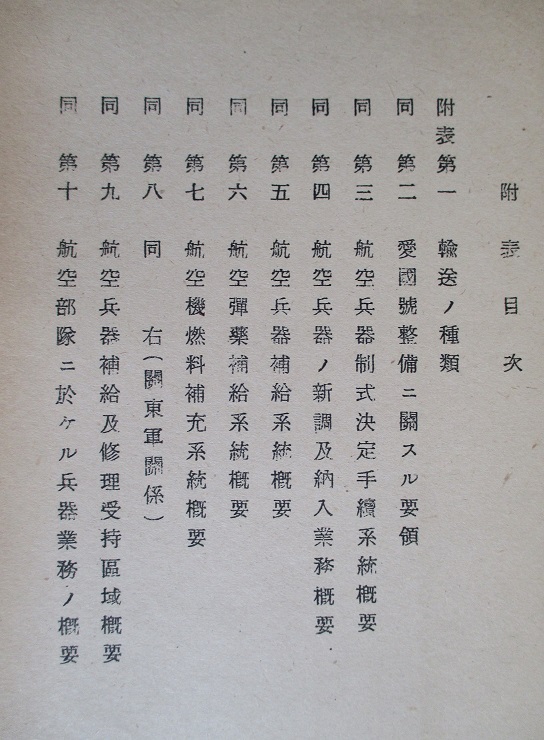 附表目次
附表第一　輸送ノ種類
同　第二　愛國號整備ニ關スル要領
同　第三　航空兵器制式決定手續系統概要
同　第四　航空兵器ノ新調及納入業務概要
同　第五　航空兵器補給系統概要
同　第六　航空彈藥補給系統概要
同　第七　航空機燃料補充系統概要
同　第八　同　右（關東軍關係）
同　第九　航空兵器補給及修理受持區域概要
同　第十　航空部隊ニ於ケル兵器業務ノ概要